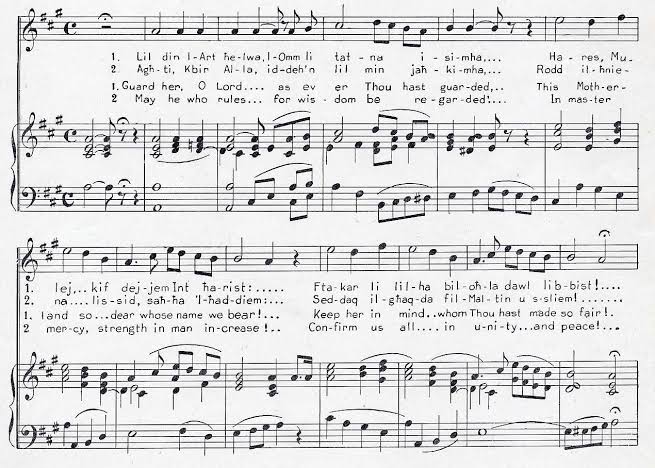 1. Lil din l-Art ħelwa, l-Omm li tat-na i-simha,... Ha-res, Mu-
2. Agħ-ti, Kbir Al-la, id-deh'n lil min jaħ-kimha,... Rodd il-ħnie-
1. Guard her, O Lord.... as ev er Thou hast guar-ded,.. This Moth-er-
2 May he who rules... for wis-dom be re-gar-ded!... In mas ter
1. lej,.. kif dej-jem Int ħa-rist:..... Fta-kar li lil-ha bil-oh-la dawl lib-bist!....
2. na....lis-sid, saħ-ħa 'l-ħad-diem:... Sed-daq il-għaq-da fil-Mal-tin u s-sliem!......
1. land so...dear whose name we bear!... Keep her in mind..whom Thou hast made so fair!.
2. mer-cy, strength in man in-crease!.. Con-firm us all.... in u-ni-ty...and peace!...